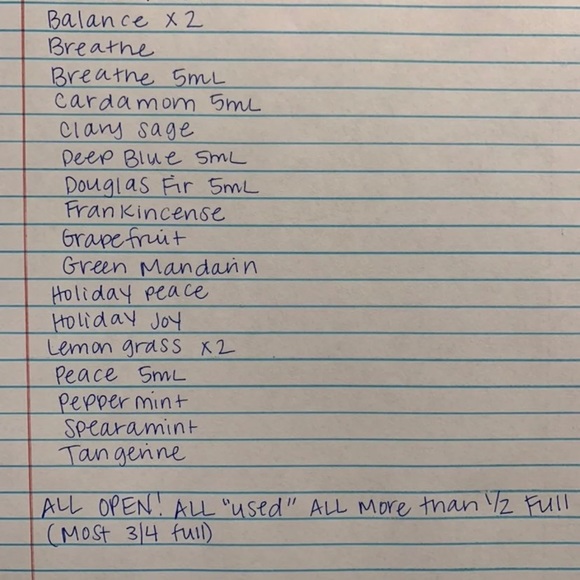 Balance x2
Breathe
Breathe 5mL
Cardamom 5mL
Clary sage
Deep Blue 5mL
Douglas Fir 5mL
Frankincense
Grapefruit
Green Mandarin
Holiday peace
Holiday Joy
Lemon grass x2
Peace 5mL
Peppermint
Spearamint
Tangerine
ALL OPEN! ALL "used" ALL More than 1/2 Full
(Most 3/4 full)